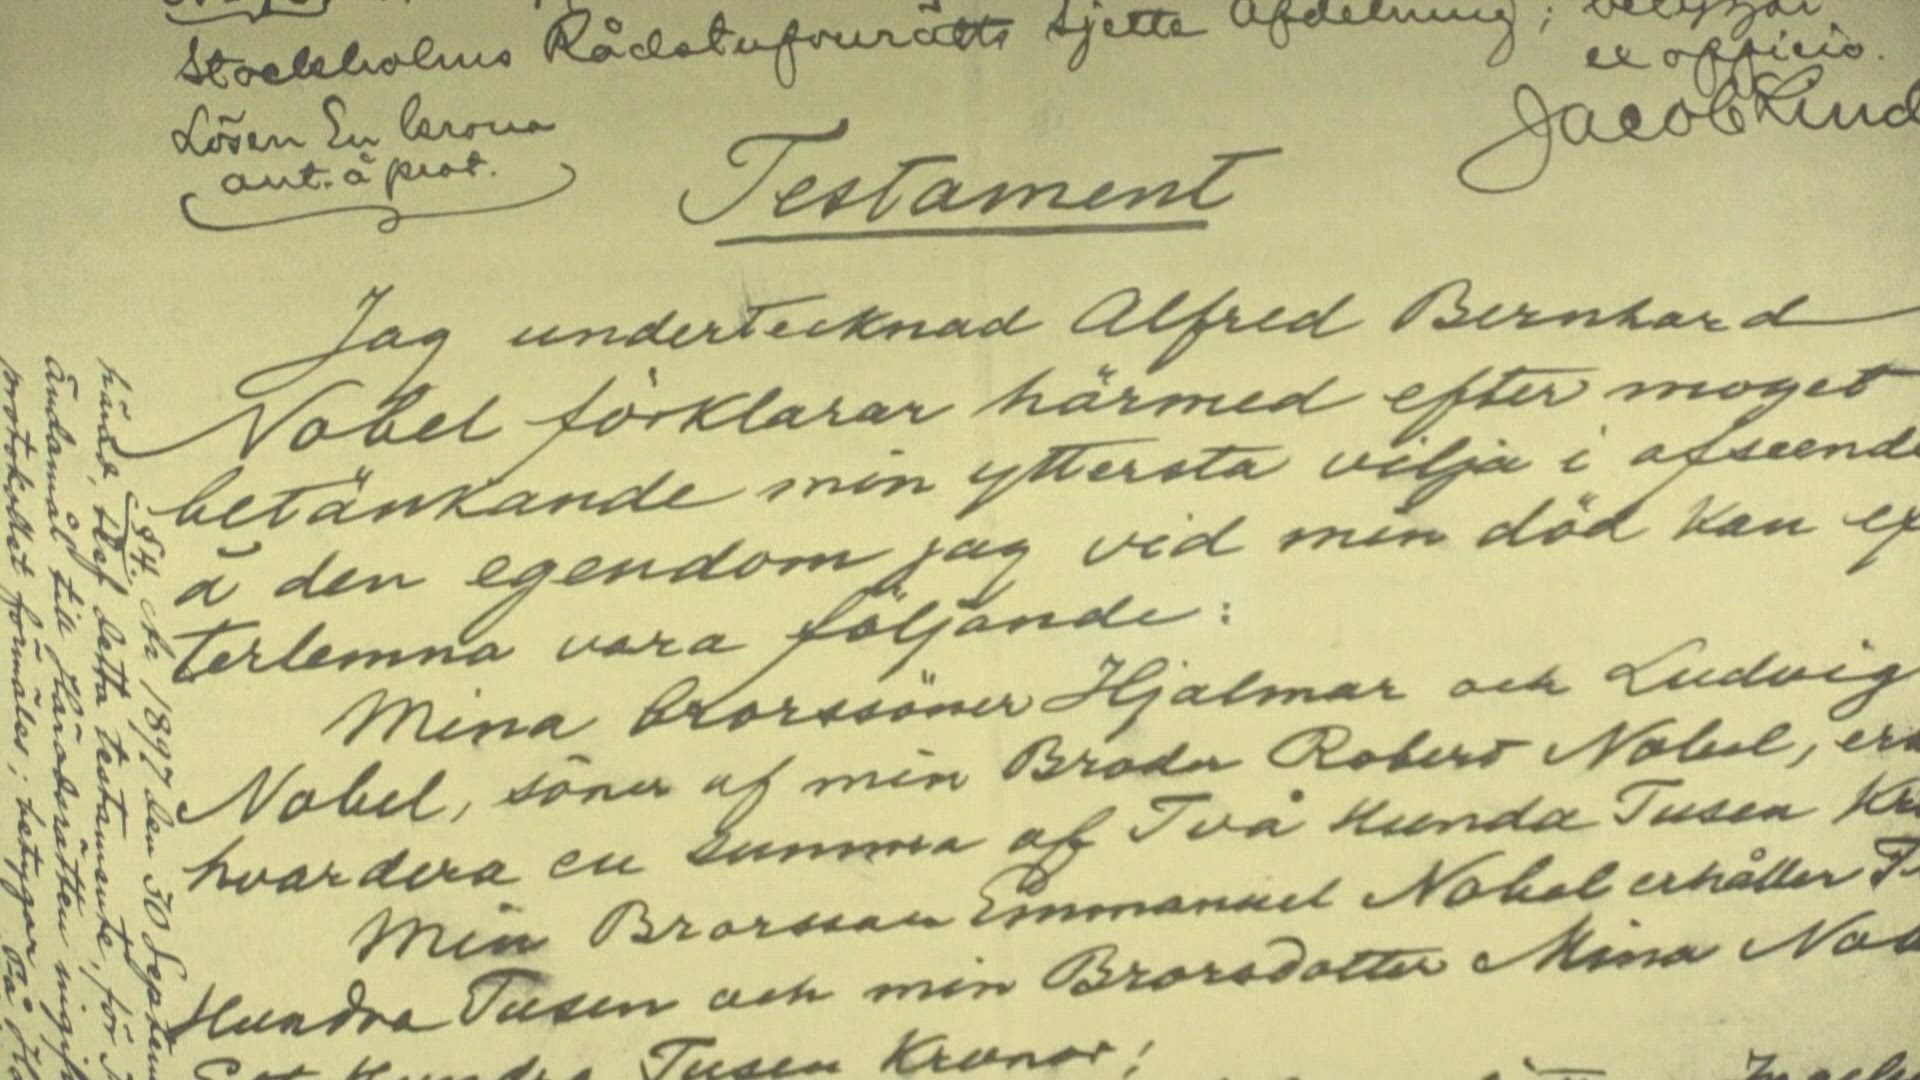 Stockholms Rådstufvurätts sjette Afdelning; betygar
ex officio.
Lösen En krona
ant. å prot.
Jacob Lind
Testament
Jag undertecknad Alfred Bernhard
Nobel förklarar härmed efter moget
betänkande min yttersta vilja i afseende
å den egendom jag vid min död kan ef
terlemna vara följande:
Mina brorssöner Hjalmar och Ludvig
Nobel, söner af min Broder Robert Nobel, er
hvardera en summa af Två Hundra Tusen Kr
Min Brorsson Emmanuel Nobel erhåller T
Hundra Tusen och min Brorsdotter Mina Nob
Ett Hundra Tusen Kronor;
§ 4. År 1897 den 30 Septem
händ, blef detta testamente, för
ändamål till Häradsrätten ingif
protokollet förmäler; betygar På Hä